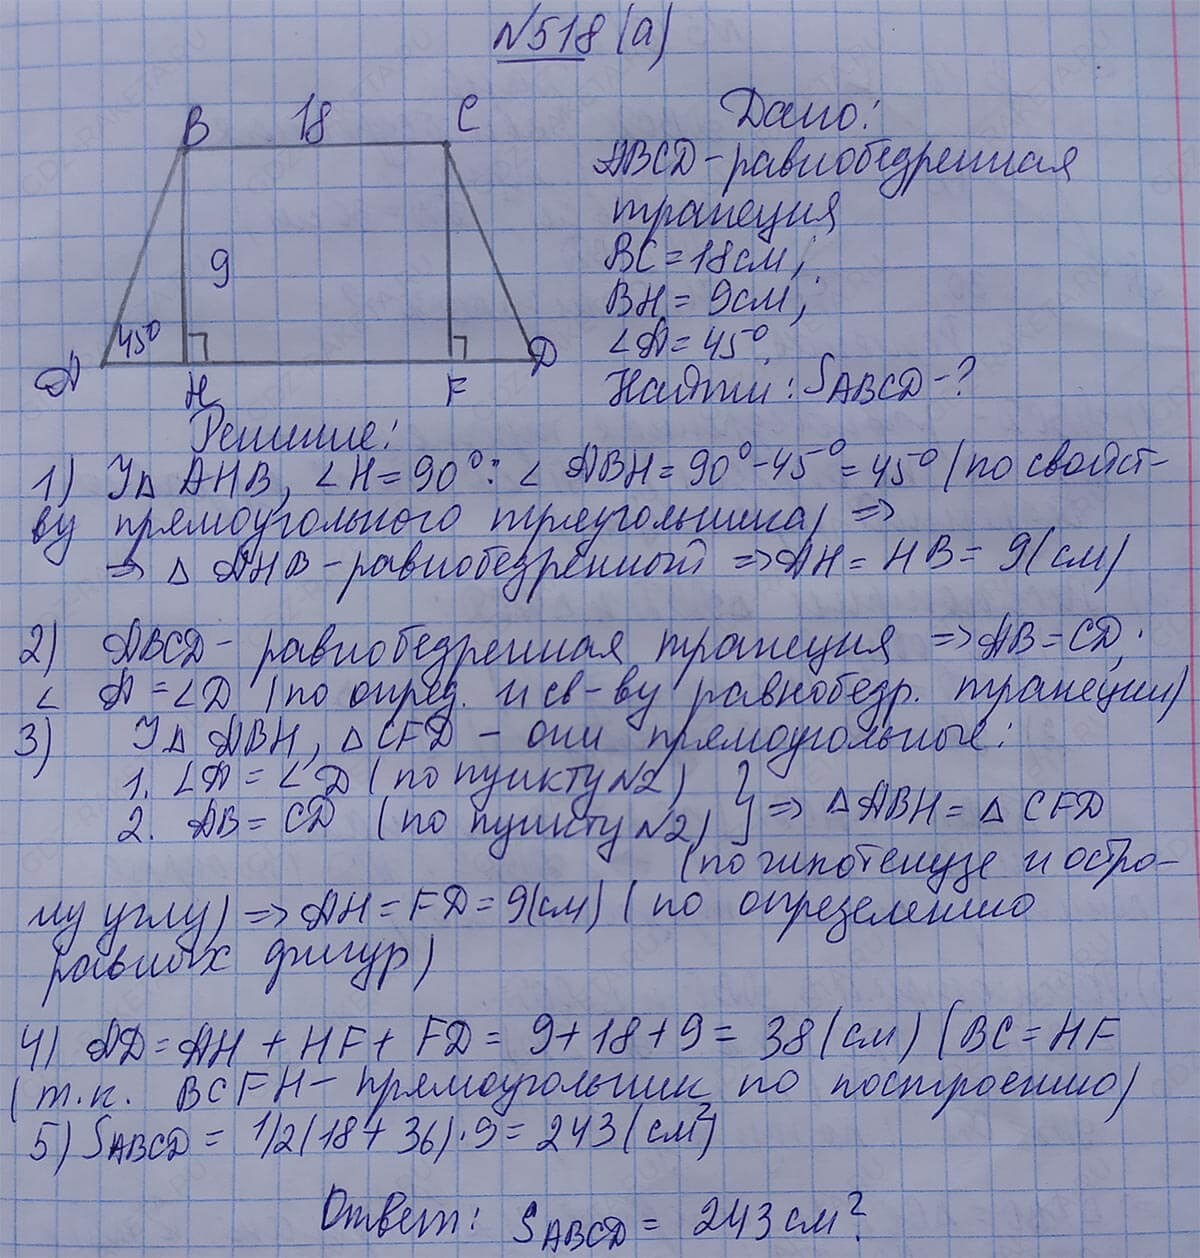 №518 (а)
B 18 C
9
45°
A H F D
Дано:
ABCD - равнобедренная
трапеция
BC = 18 см;
BH = 9 см;
∠A = 45°
Найти: S ABCD - ?
Решение:
1) У△ AHB, ∠H = 90°: ∠ ABH = 90° - 45° = 45° (по свойст-
ву прямоугольного треугольника) =>
=> △ AHB - равнобедренный => AH = HB = 9 (см)
2) ABCD - равнобедренная трапеция => AB = CD;
∠ A = ∠D (по опред. и св-ву равнобедр. трапеции)
3) У△ ABH, △ CFD - они прямоугольные:
1. ∠A = ∠D (по пункту №2)
2. AB = CD (по пункту №2) } => △ ABH = △ CFD
(по гипотенузе и остро-
му углу) => AH = FD = 9 (см) (по определению
равных фигур)
4) AD = AH + HF + FD = 9 + 18 + 9 = 38 (см) (BC = HF
(т.к. BCFH - прямоугольник по построению)
5) S ABCD = 1/2 (18 + 36) · 9 = 243 (см²)
Ответ: S ABCD = 243 см².